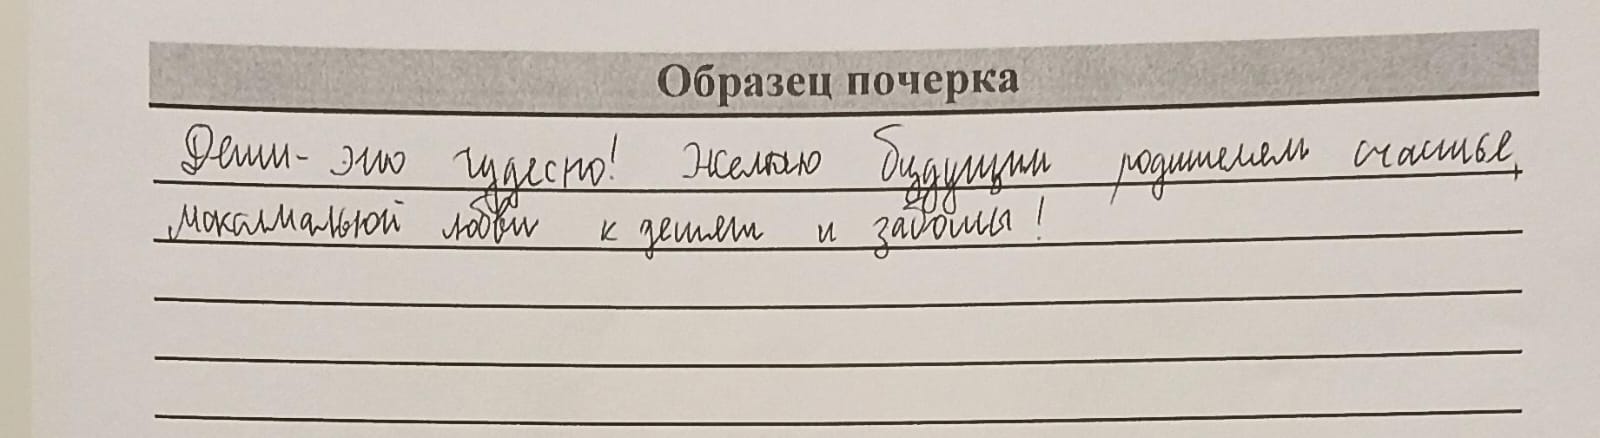 Образец почерка
Дети - это чудесно! Желаю будущим родителям счастье,
мокалмальной любви к детям и заботы!